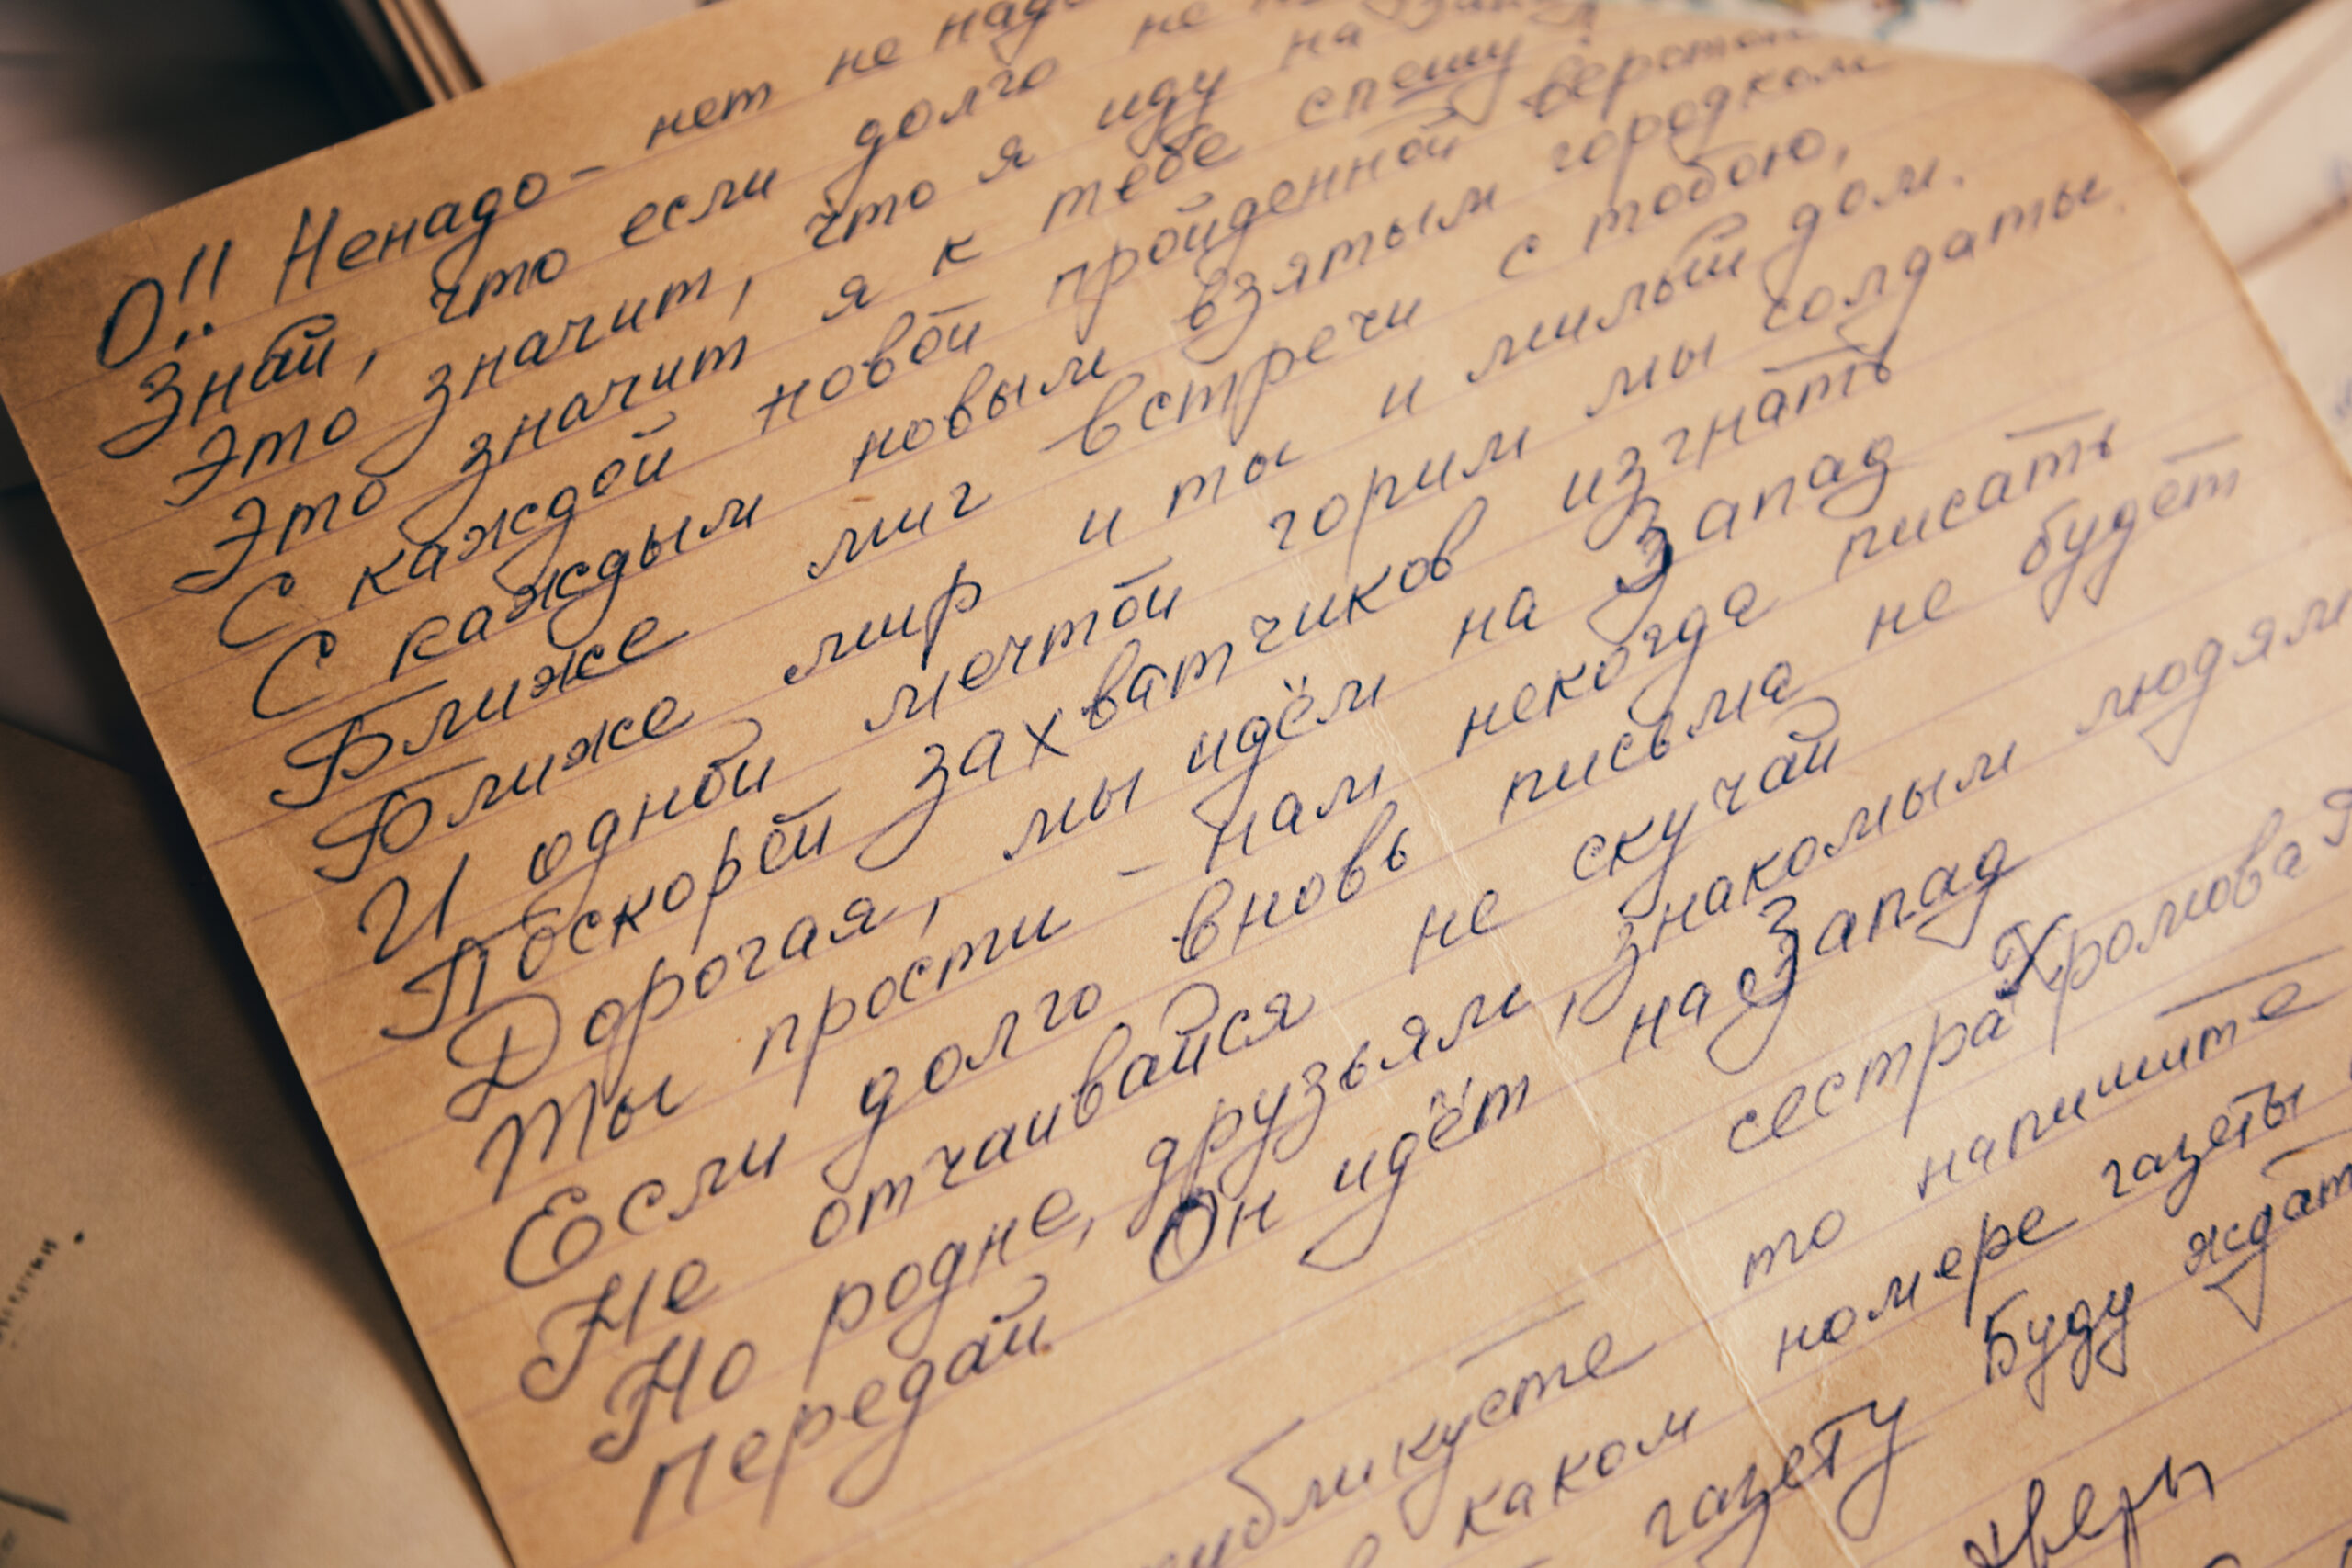 О!! Ненадо - нет не
Знай, что если долго не
Это значит, что я иду на
Это значит я к тебе спешу
С каждой новой пройденной
С каждым новым взятым городком
Ближе миг встречи с тобою,
Ближе мир и ты и милый дом.
И одной мечтой горим мы солдаты.
Поскорей захватчиков изгнать
Дорогая, мы идём на Запад
Ты прости - нам некогда писать
Если долго вновь письма не будет
Не отчаивайся не скучай
Но родне, друзьям, знакомым людям
Передай Он идёт на Запад
сестра Хромова
то напишите
каком номере газеты
газету Буду